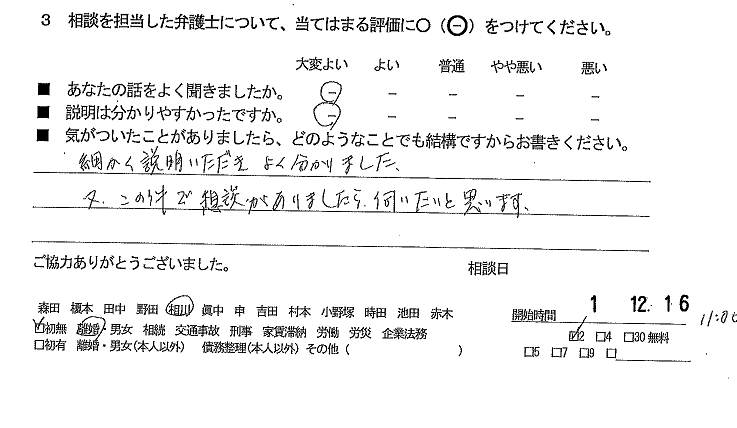 3 相談を担当した弁護士について、当てはまる評価に○（⊖）をつけてください。
大変よい よい 普通 やや悪い 悪い
■ あなたの話をよく聞きましたか。 － － － － －
■ 説明は分かりやすかったですか。 － － － － －
■ 気がついたことがありましたら、どのようなことでも結構ですからお書きください。
細かく説明いただき よく分かりました、
又、この件で想談がありましたら、伺いたいと思います。
ご協力ありがとうございました。 相談日
森田 榎本 田中 野田 相川 眞中 申 吉田 村本 小野塚 時田 池田 赤木
開始時間 1 12. 16 11:00
☑初無 離婚・男女 相続 交通事故 刑事 家賃滞納 労働 労災 企業法務
☑2 □4 □30 無料
□初有 離婚・男女（本人以外） 債務整理（本人以外） その他（ ）
□5 □7 □9 □